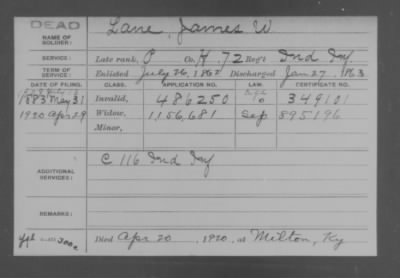 DEAD
NAME OF SOLDIER: Lane, James W.
SERVICE: Late rank, P Co. H, 72 Reg't Ind Inf.
TERM OF SERVICE: Enlisted July 26, 1862 Discharged Jan 27, 1863
DATE OF FILING. CLASS. APPLICATION NO. LAW. CERTIFICATE NO.
1883 May 31 Invalid, 486250 349101
1920 Apr 29 Widow, 1,156,681 Sep 895196
Minor,
ADDITIONAL SERVICES: C 116 Ind Inf
REMARKS:
300 Died Apr 20, 1920, at Milton, Ky